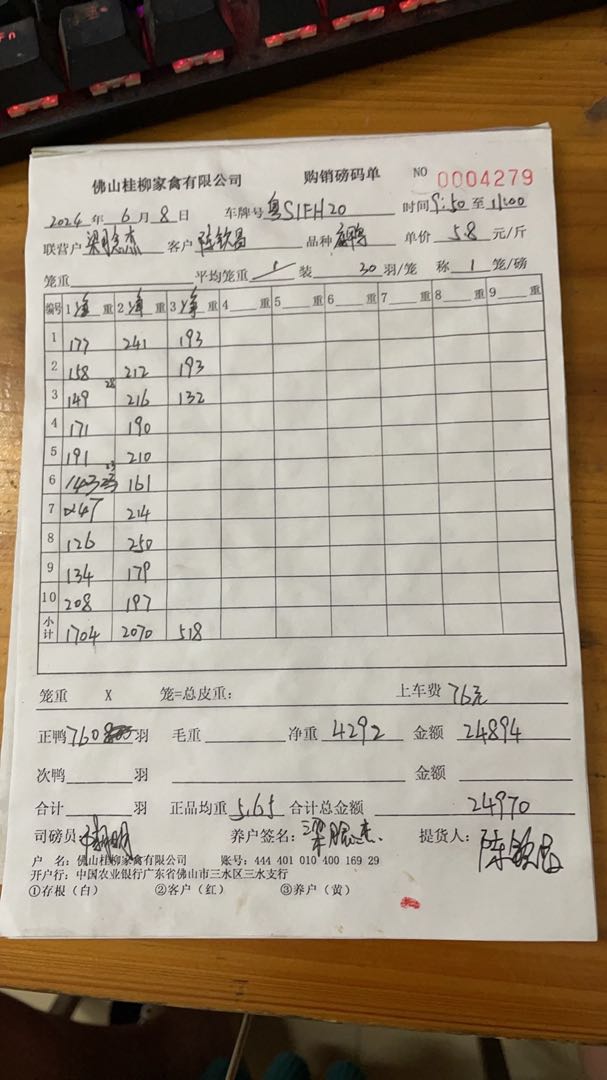 佛山桂柳家禽有限公司 购销磅码单 NO 0004279
2024 年 6 月 8 日 车牌号 粤S1FH20 时间 9:50 至 11:00
联营户 梁 杰 客户 陈钦昌 品种 麻鸭 单价 5.8 元/斤
笼重 平均笼重 装 20 羽/笼 称 1 笼/磅
编号 1 净 重 2 净 重 3 净 重 4 重 5 重 6 重 7 重 8 重 9 重
1 177 241 193
2 158 212 193
3 149 28 216 132
4 171 190
5 191 210
6 143 23 161
7 247 214
8 126 250
9 134 179
10 208 197
小计 1704 2070 518
笼重 X 笼=总皮重: 上车费 76元
正鸭 760 羽 毛重 净重 4292 金额 24894
次鸭 羽 金额
合计 羽 正品均重 5.65 合计总金额 24970
司磅员: 明 养户签名: 梁 杰 提货人: 陈钦昌
户 名: 佛山桂柳家禽有限公司 账号: 444 401 010 400 169 29
开户行: 中国农业银行广东省佛山市三水区三水支行
①存根（白） ②客户（红） ③养户（黄）